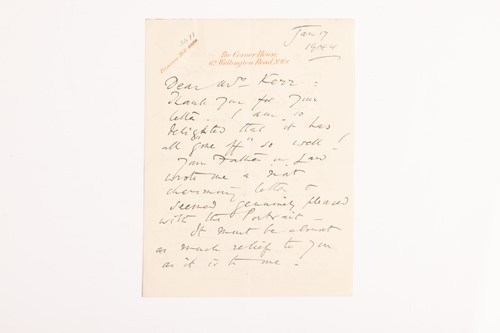 Jan 17
1944
The Corner House
62 Wellington Road N.W.8.
Dear Mrs Kerr:
Thank you for your
letter. I am so
delighted that it has
all "gone off" so well!
Your Father-in-Law
wrote me a most
charming letter &
seemed genuinely pleased
with the Portrait –
It must be almost
as much relief to you
as it is to me.